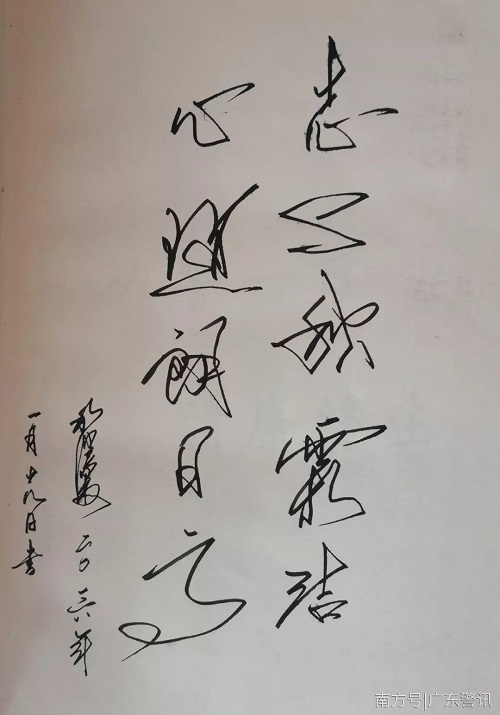 志与秋霜洁
心随朗日高
二〇一六年
一月十九日书
南方号|广东警讯